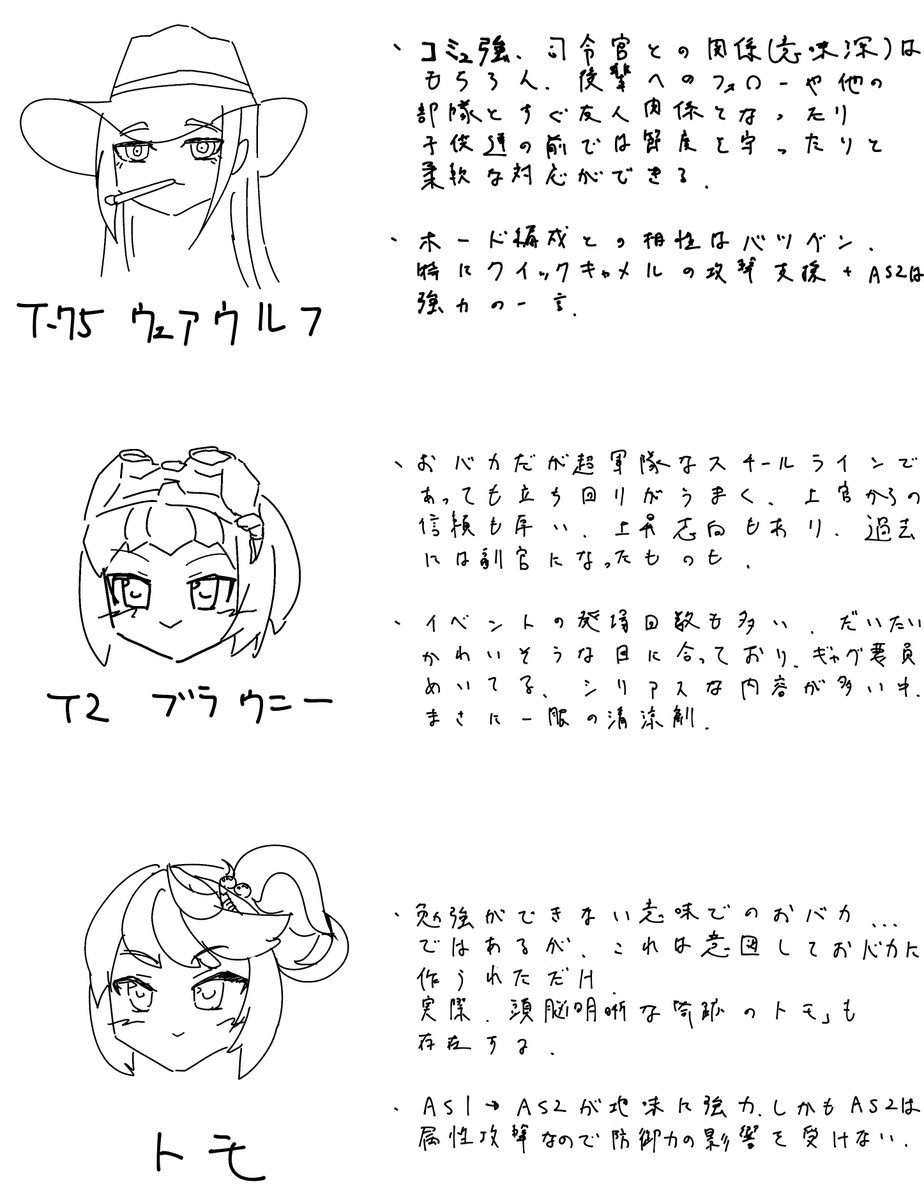 ・コミュ強、司令官との関係(意味深)は
もちろん、後輩へのフォローや他の
部隊とすぐ友人関係となったり
子供達の前では節度を守ったりと
柔軟な対応ができる.
・ホード編成との相性はバツグン.
特にクイックキャメルの攻撃支援+AS2は
強力の一言.
T-75 ウェアウルフ
・おバカだが超軍隊なスチールラインで
あっても立ち回りがうまく、上官からの
信頼も厚い、上昇志向もあり、過去
には副官になったものも.
・イベントの登場回数も多い、だいたい
かわいそうな目に合っており、ギャグ要員
めいてる、シリアスな内容が多い中、
まさに一服の清涼剤.
T2 ブラウニー
・勉強ができない意味でのおバカ...
ではあるが、これは意図しておバカに
作られただけ.
実際、頭脳明晰な「奇跡のトモ」も
存在する.
・AS1→AS2が地味に強力.しかもAS2は
属性攻撃なので防御力の影響を受けない.
トモ